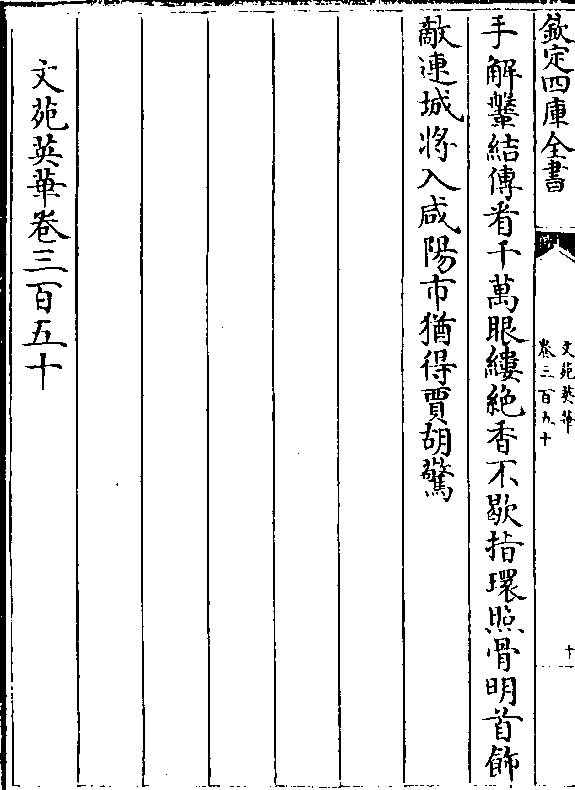 欽定四庫全書
文苑英華
卷三百五十
十
手解鞶結傳看千萬眼縷絶香不歇指環照骨明首飾
敵連城將入咸陽市猶得賈胡驚
文苑英華卷三百五十